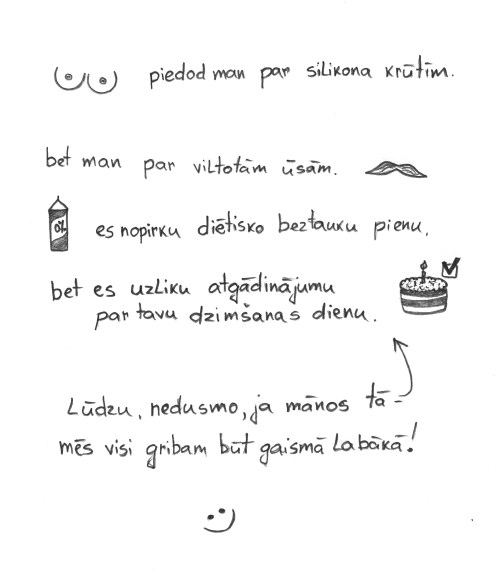 piedod man par silikona krūtīm.
bet man par viltotām ūsām.
0%
es nopirku diētisko beztauku pienu,
bet es uzliku atgādinājumu
par tavu dzimšanas dienu.
Lūdzu, nedusmo, ja mānos tā-
mēs visi gribam būt gaismā labākā!